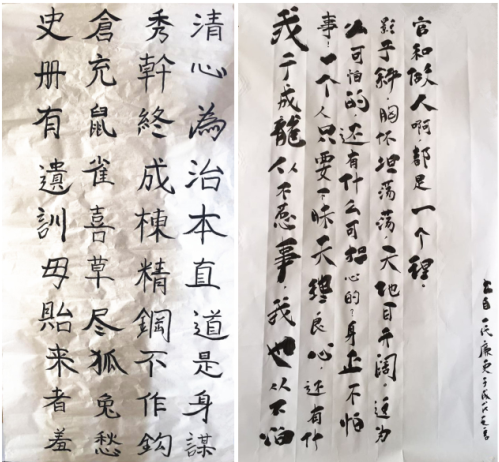 清心為治本直道是身謀
秀幹終成棟精鋼不作鈎
倉充鼠雀喜草尽狐兔愁
史册有遺訓毋貽来者羞
我于成龍从不惹事，我也从不怕
事，一个人只要不昧天终良心，还有什
么可怕的，还有什么可担心的，身正不怕
影子斜，胸怀坦荡荡，天地自开阔，这为
官和做人啊都是一个理。
出自一代廉吏于成龙